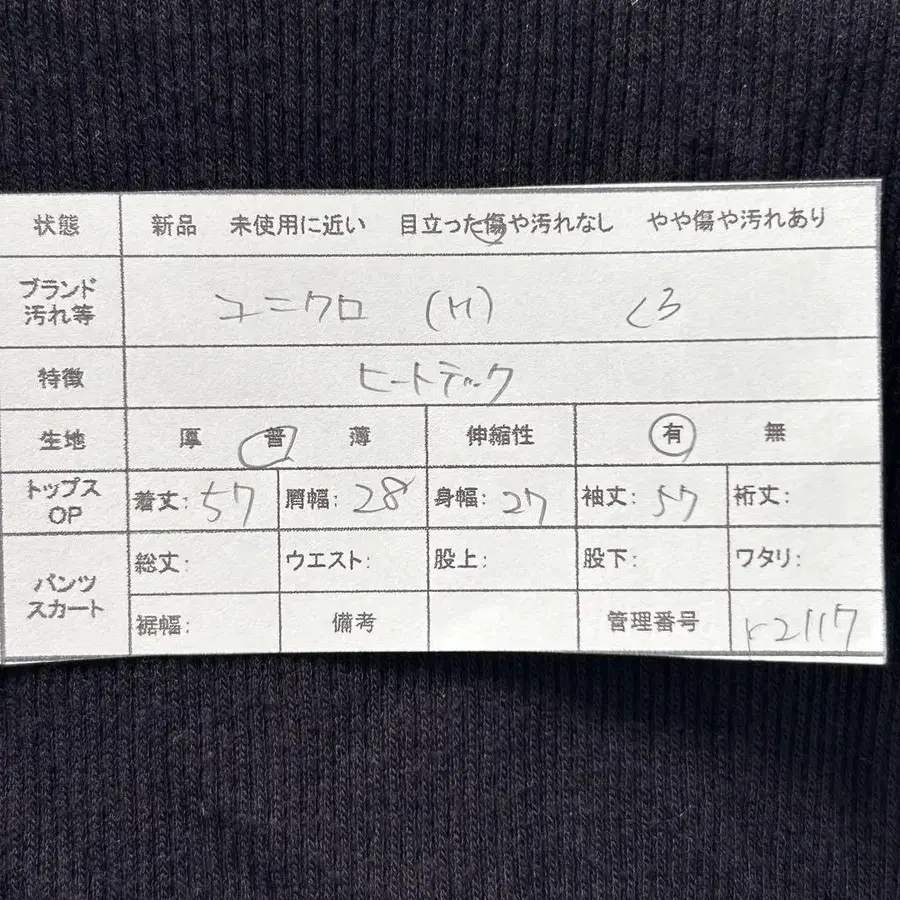 状態 新品 未使用に近い 目立った傷や汚れなし やや傷や汚れあり
ブランド
汚れ等 ユニクロ (M) くろ
特徴 ヒートテック
生地 厚 普 薄 伸縮性 有 無
トップス
OP 着丈: 57 肩幅: 28 身幅: 27 袖丈: 57 裄丈:
パンツ
スカート 総丈: ウエスト: 股上: 股下: ワタリ:
裾幅: 備考 管理番号 r2117